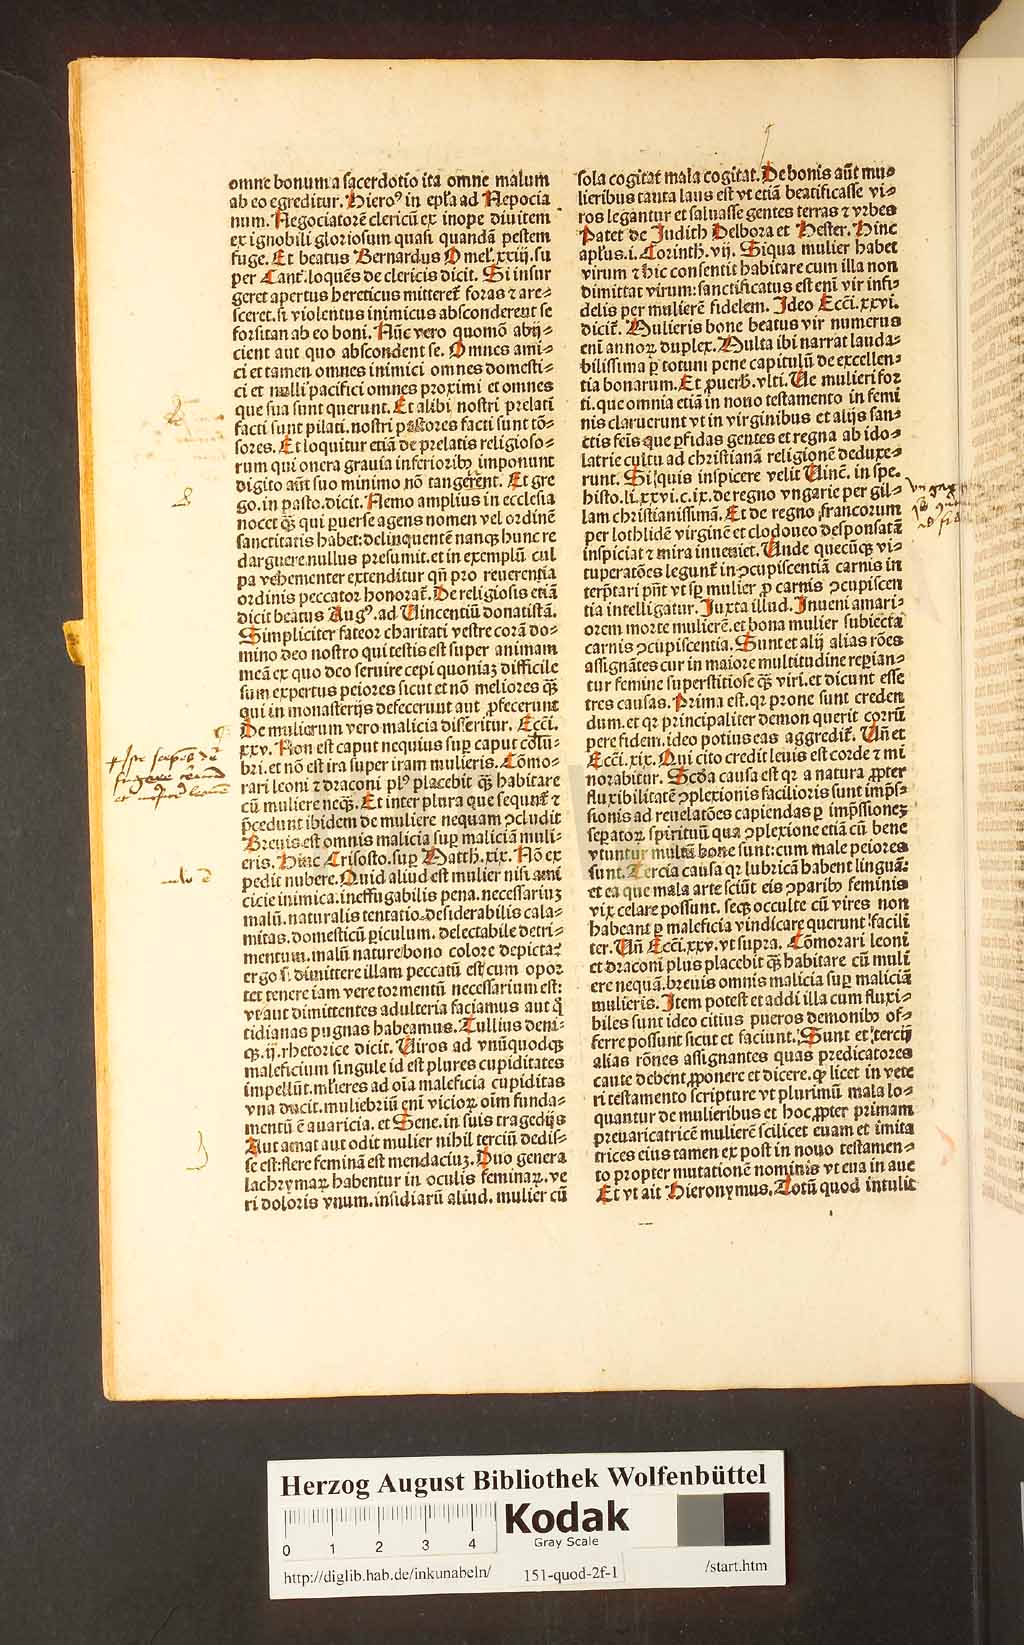 omne bonum a sacerdotio ita omne malum
ab eo egreditur. Hieroꝰ in epła ad Nepocia
num. Negociatorē clericū ex inope diuitem
ex ignobili gloriosum quasi quandā pestem
fuge. Et beatus Bernardus Omel. xxiij. su
per Cant̄. loquēs de clericis dicit. Si insur
geret apertus hereticus mitteret̄ foras ⁊ are⸗
sceret. si violentus inimicus absconderent se
forsitan ab eo boni. Nūc vero quomō abij⸗
cient aut quo abscondent se. Omnes ami⸗
ci et tamen omnes inimici omnes domesti⸗
ci et nulli pacifici omnes proximi et omnes
que sua sunt querunt. Et alibi nostri prelati
facti sunt pilati. nostri pastores facti sunt tō⸗
sores. Et loquitur etiā de prelatis religioso⸗
rum qui onera grauia inferioribꝫ imponunt
digito aūt suo minimo nō tangerent. Et gre
go. in pasto. dicit. Nemo amplius in ecclesia
nocet qꝫ̄ qui ꝑuerse agens nomen vel ordinē
sanctitatis habet: delinquentē nanqꝫ hunc re
darguere nullus presumit. et in exemplū cul
pa vehementer extenditur qn̄ pro reuerentia
ordinis peccator honorat̄. De religiosis etiā
dicit beatus Augꝰ. ad Vincentiū donatistā.
Simpliciter fateor charitati vestre corā do⸗
mino deo nostro qui testis est super animam
meā ex quo deo seruire cepi quoniaꝫ difficile
sum expertus peiores sicut et nō meliores qꝫ̄
qui in monasterijs defecerunt aut ꝓfecerunt
De mulierum vero malicia disseritur. Ecci̅.
xxv. Non est caput nequius suꝑ caput colu⸗
bri. et nō est ira super iram mulieris. Cōmo⸗
rari leoni ⁊ draconi plꝰ placebit qꝫ̄ habitare
cū muliere neqꝫ. Et inter plura que sequunt̄ ⁊
p̄cedunt ibidem de muliere nequam ↄcludit
Breuis est omnis malicia suꝑ maliciā muli⸗
eris. Hinc Crisosto. suꝑ Matth. xix. Nō ex
pedit nubere. Quid aliud est mulier nisi ami
cicie inimica. ineffugabilis pena. necessariuꝫ
malū. naturalis tentatio. desiderabilis cala⸗
mitas. domesticū ꝑiculum. delectabile detri⸗
mentum. malū nature bono colore depicta:
ergo si dimittere illam peccatū est cum opor
tet tenere iam vere tormentū necessarium est:
vt aut dimittentes adulteria faciamus aut q̄
tidianas pugnas habeamus. Tullius deni⸗
qꝫ. ij. rhetorice dicit. Viros ad vnūquodqꝫ
maleficium singule id est plures cupiditates
impellūt. ml̄ieres ad oīa maleficia cupiditas
vna ducit. muliebriū enī vicioꝝ oīm funda⸗
mentū ē auaricia. et Sene. in suis tragedijs
Aut amat aut odit mulier nihil terciū dedis⸗
se est: flere feminā est mendaciuꝫ. Duo genera
lachrymaꝝ habentur in oculis feminaꝝ. ve
ri doloris vnum. insidiarū aliud. mulier cū
sola cogitat mala cogitat. De bonis aūt mu⸗
lieribus tanta laus est vt etiā beatificasse vi⸗
ros legantur et saluasse gentes terras ⁊ vrbes
Patet de Judith Delbora et Hester. Hinc
apl̄us. i. Corinth. vij. Siqua mulier habet
virum ⁊ hic consentit habitare cum illa non
dimittat virum: sanctificatus est enī vir infi⸗
delis per mulierē fidelem. Ideo Ecci̅. xxvi.
dicit̄. Mulieris bone beatus vir numerus
enī annoꝝ duplex. Multa ibi narrat lauda⸗
bilissima ꝑ totum pene capitulū de excellen⸗
tia bonarum. Et ꝓuerb. vlti. De mulieri for
ti. que omnia etiā in nouo testamento in femi
nis claruerunt vt in virginibus et alijs san⸗
ctis feis que ꝑfidas gentes et regna ab ido⸗
latrie cultu ad christianā religionē deduxe⸗
runt. Si quis inspicere velit Vinc̄. in spe.
histo. li. xxvi. c. ix. de regno vngarie per gil⸗
lam christianissimā. Et de regno francorum
per lothlidē virginē et clodoueo desponsatā
inspiciat ⁊ mira inueniet. Unde quecūqꝫ vi⸗
tuperatōes legunt̄ in ↄcupiscentiā carnis in
terp̄tari pn̄t vt sꝑ mulier ꝓ carnis ↄcupiscen
tia intelligatur. Juxta illud. Inueni amari⸗
orem morte mulierē. et bona mulier subiecta
carnis ↄcupiscentia. Sunt et alij alias rōes
assignātes cur in maiore multitudine reꝑian⸗
tur femine superstitiose qꝫ̄ viri. et dicunt esse
tres causas. Prima est. qꝛ prone sunt creden
dum. et qꝛ principaliter demon querit corrū
pere fidem. ideo potius eas aggredit̄. Un̄ et
Ecci̅. xix. Qui cito credit leuis est corde ⁊ mi
norabitur. Scd̄a causa est qꝛ a natura ꝓpter
fluxibilitatē ↄplexionis facilioris sunt imp̄s⸗
sionis ad reuelatōes capiendas ꝑ imp̄ssionez
seperatoꝝ spirituū qua ↄplexione etiā cū bene
vtuntur multū bone sunt: cum male peiores
sunt. Tercia causa qꝛ lubricā habent linguā:
et ea que mala arte sciūt eis ↄparibꝫ feminis
vix celare possunt. seqꝫ occulte cū vires non
habeant ꝑ maleficia vindicare querunt facili
ter. Un̄ Ecci̅. xxv. vt supra. Cōmorari leoni
et draconi plus placebit qꝫ̄ habitare cū muli
ere nequā. breuis omnis malicia suꝑ maliciā
mulieris. Item potest et addi illa cum fluxi⸗
biles sunt ideo citius pueros demonibꝫ of⸗
ferre possunt sicut et faciunt. Sunt et tercij
alias rōnes assignantes quas predicatores
caute debent ꝓponere et dicere. qꝫ licet in vete
ri testamento scripture vt plurimū mala lo⸗
quantur de mulieribus et hoc ꝓpter primam
preuaricatricē mulierē scilicet euam et imita
trices eius tamen ex post in nouo testamen⸗
to propter mutationē nominis vt eua in aue
Et vt ait Hieronymus. Totū quod intulit
Herzog August Bibliothek Wolfenbüttel
Kodak
Gray Scale
0 1 2 3 4
http://diglib.hab.de/inkunabeln/ 151-quod-2f-1 /start.htm